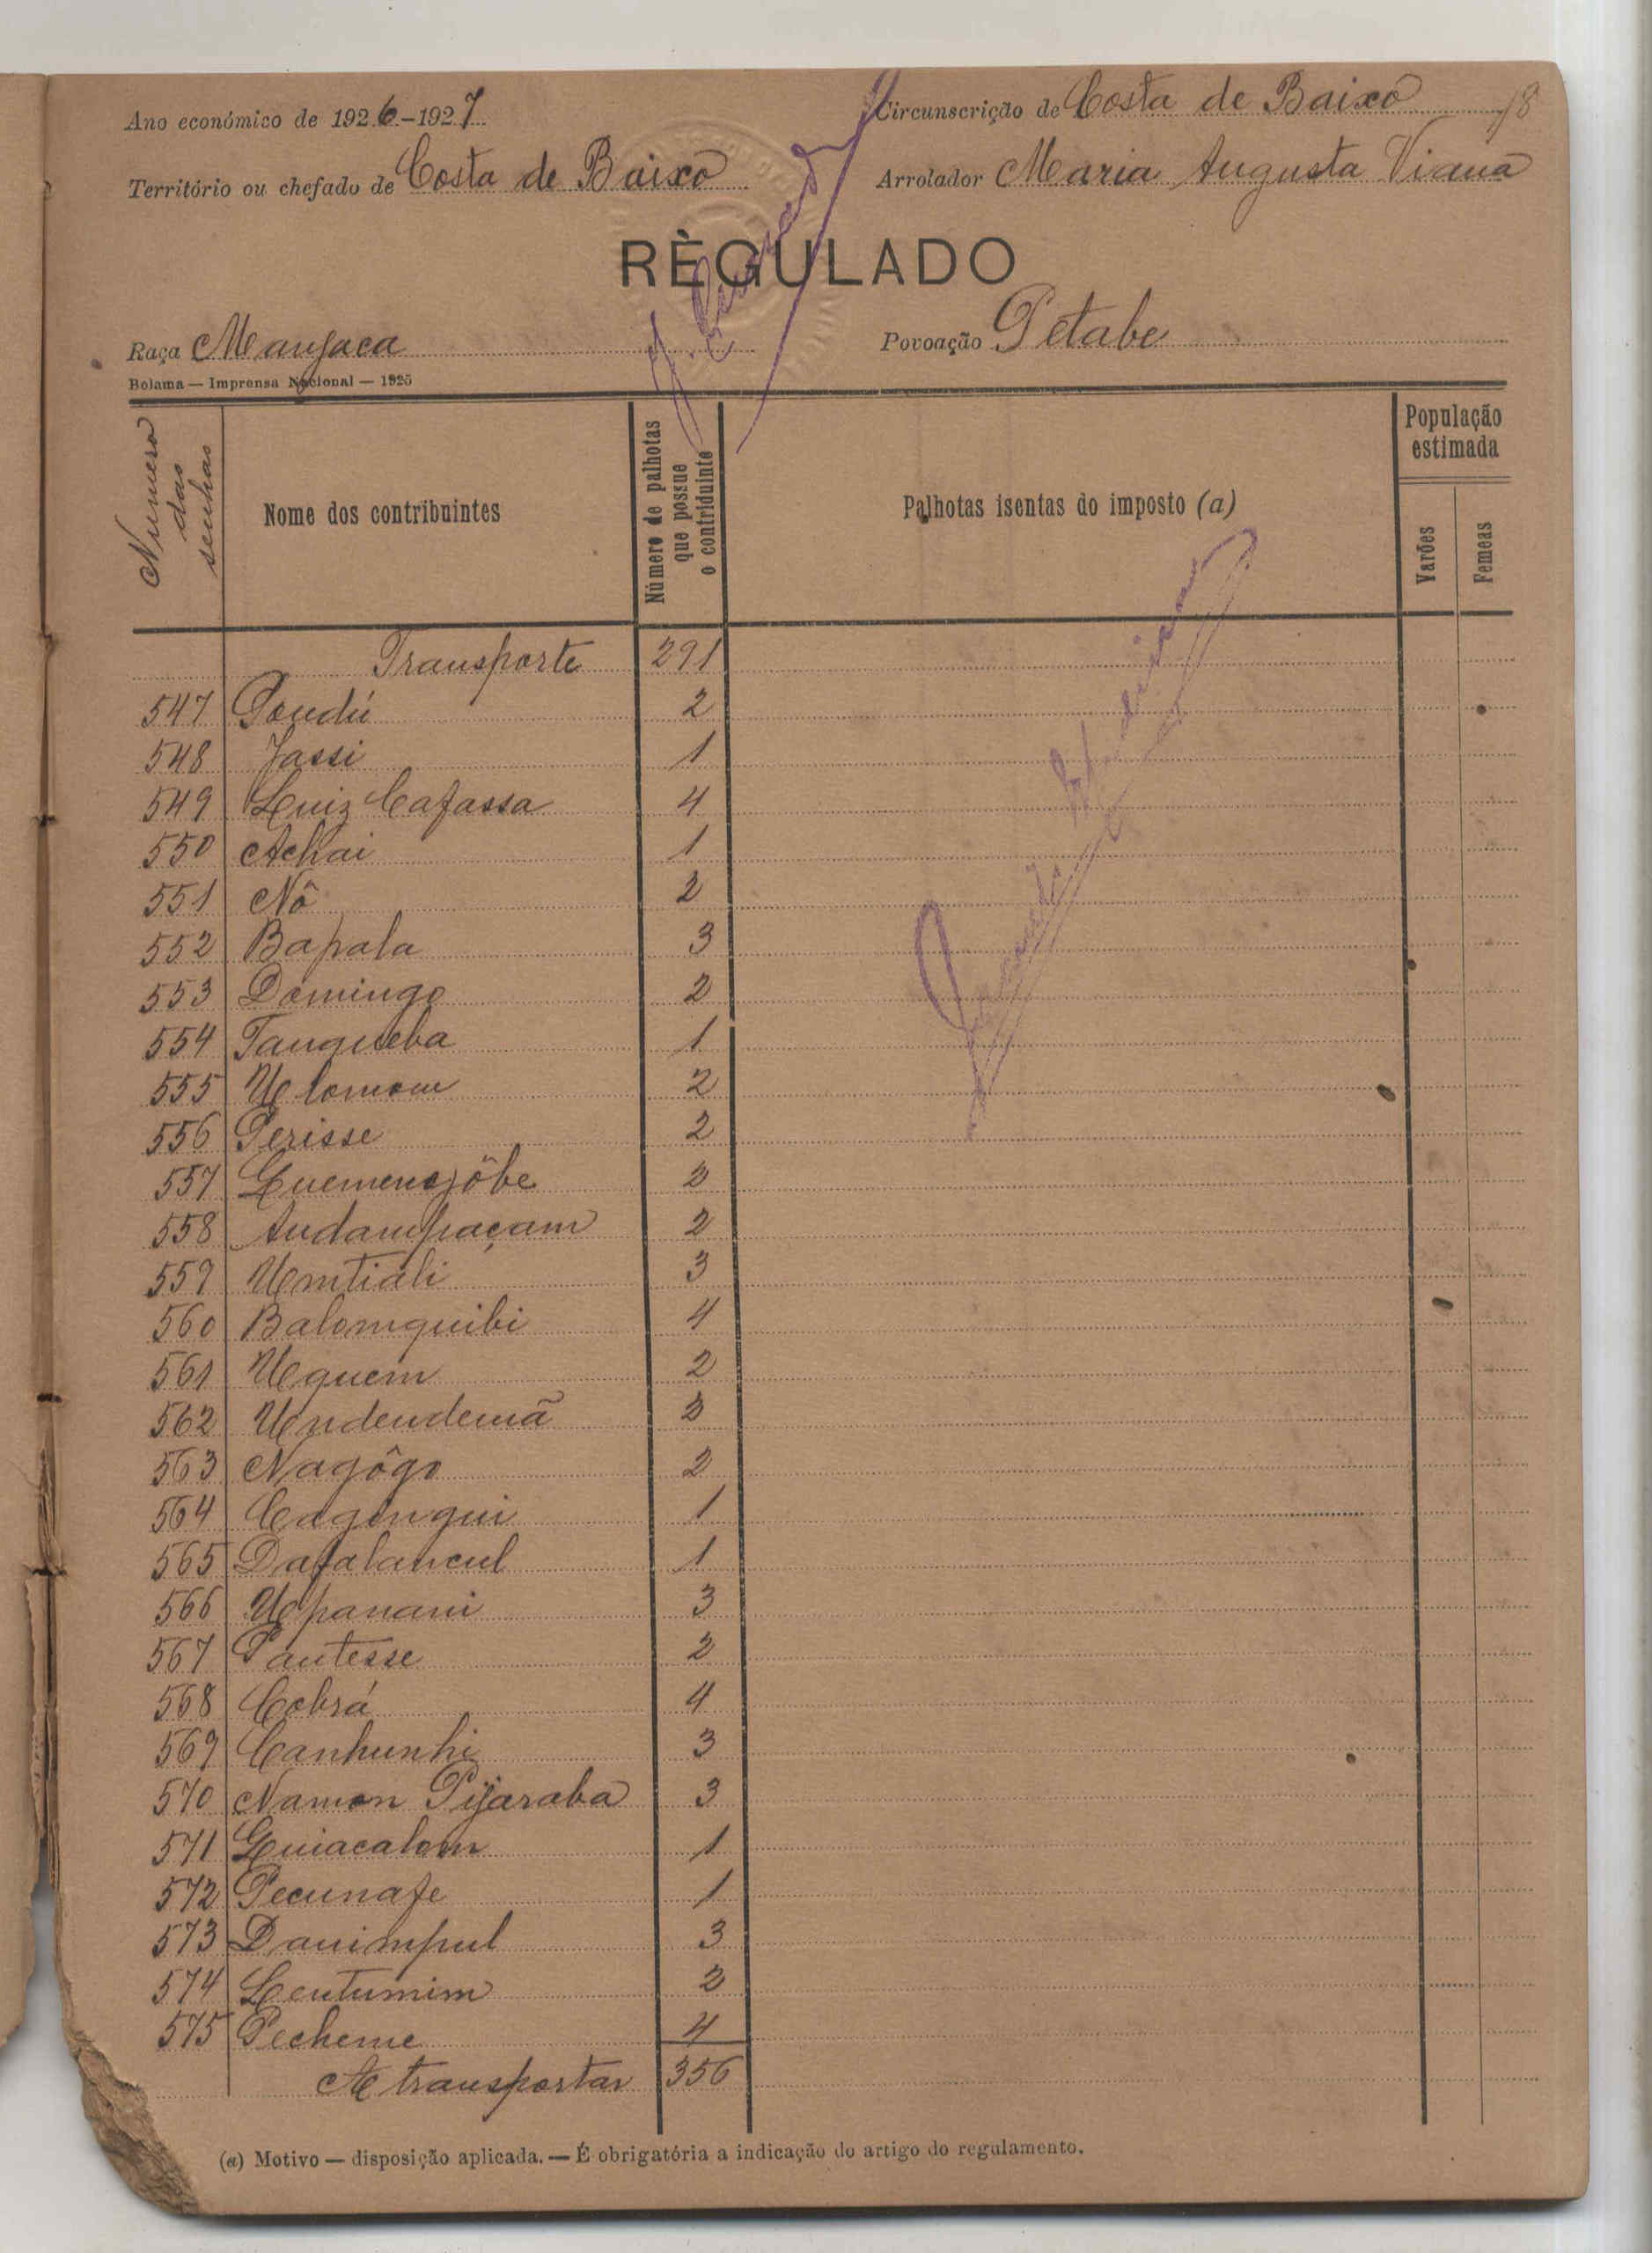 Ano económico de 1926-1927
Circunscrição de Costa de Baixo 18
Território ou chefado de Costa de Baixo
Arrolador Maria Augusta Viana
RÈGULADO
Raça Manjaca
Povoação Petabe
Bolama — Imprensa Nacional — 1925
Numero das senhas
Nome dos contribuintes
Número de palhotas que possue o contriduinte
Palhotas isentas do imposto (a)
População estimada
Varões
Femeas
Transporte 291
547 Pondú 2
548 Jassi 1
549 Luiz Cafassa 4
550 Achai 1
551 Nô 2
552 Bapala 3
553 Domingo 2
554 Tangueba 1
555 Ulomom 2
556 Perisse 2
557 Guemenojôbe 2
558 Andampaçam 2
559 Umtiali 3
560 Balomquibi 4
561 Uquem 2
562 Undendemã 3
563 Nagôgo 2
564 Cagongui 1
565 Dafalancul 1
566 Upanani 3
567 Pantesse 2
568 Cobrá 4
569 Canhunhi 3
570 Namon Pijaraba 3
571 Guiacalom 1
572 Pecunafe 1
573 Danimpul 3
574 Lentumim 2
575 Pecheme 4
A transportar 356
(a) Motivo — disposição aplicada. — É obrigatória a indicação do artigo do regulamento.